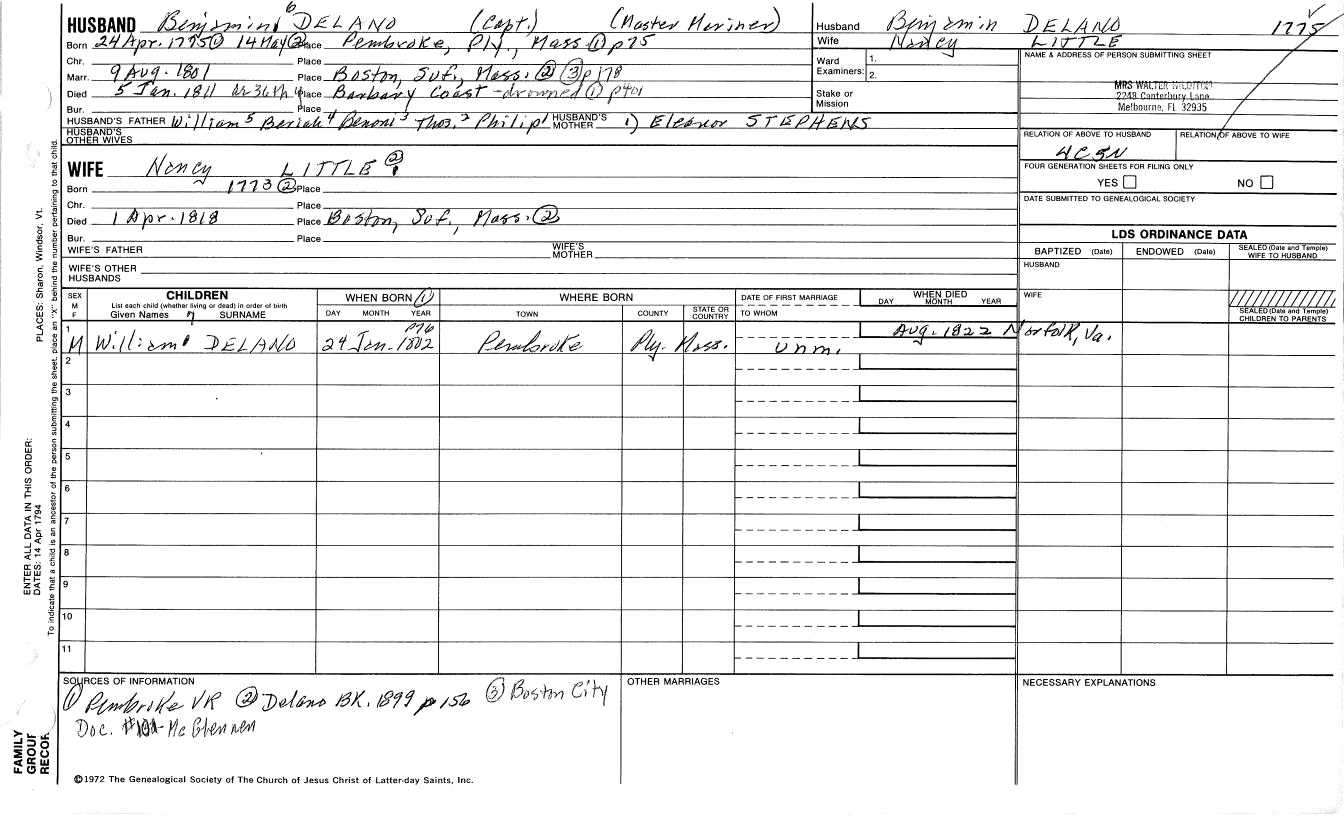 HUSBAND Benjamin 6 DELANO (Capt.) (Master Mariner)
Born 24 Apr. 1775 ① 14 May ② Place Pembroke, Ply., Mass ① p75
Chr. Place
Marr. 9 Aug. 1801 Place Boston, Suf., Mass. ② ③ p178
Died 5 Jan. 1811 in 36th y Place Barbary Coast - drowned ① p401
Bur. Place
HUSBAND'S FATHER William 5 Beriah 4 Benoni 3 Thos. 2 Philip 1 HUSBAND'S MOTHER 1) Eleanor STEPHENS
HUSBAND'S OTHER WIVES
WIFE Nancy LITTLE ②
Born 1773 ② Place
Chr. Place
Died 1 Apr. 1818 Place Boston, Suf., Mass. ②
Bur. Place
WIFE'S FATHER WIFE'S MOTHER
WIFE'S OTHER HUSBANDS
Husband Benjamin DELANO 1775
Wife Nancy LITTLE
Ward Examiners: 1. 2.
Stake or Mission
NAME & ADDRESS OF PERSON SUBMITTING SHEET
MRS WALTER
2248 Canterbury Lane
Melbourne, FL 32935
RELATION OF ABOVE TO HUSBAND RELATION OF ABOVE TO WIFE
4C5N
FOUR GENERATION SHEETS FOR FILING ONLY
YES NO
DATE SUBMITTED TO GENEALOGICAL SOCIETY
LDS ORDINANCE DATA
BAPTIZED (Date) ENDOWED (Date) SEALED (Date and Temple) WIFE TO HUSBAND
HUSBAND
WIFE
SEALED (Date and Temple) CHILDREN TO PARENTS
SEX M F CHILDREN WHEN BORN ① WHERE BORN DATE OF FIRST MARRIAGE WHEN DIED
List each child (whether living or dead) in order of birth
Given Names 7 SURNAME DAY MONTH YEAR TOWN COUNTY STATE OR COUNTRY TO WHOM DAY MONTH YEAR
1 p76 Aug. 1822 Norfolk, Va.
M William DELANO 24 Jan. 1802 Pembroke Ply. Mass. unm.
2
3
4
5
6
7
8
9
10
11
SOURCES OF INFORMATION
① Pembroke VR ② Delano BK. 1899 p 156 ③ Boston City
Doc. - McGlennen
OTHER MARRIAGES
NECESSARY EXPLANATIONS
©1972 The Genealogical Society of The Church of Jesus Christ of Latter-day Saints, Inc.
FAMILY
GROUP
RECOR
ENTER ALL DATA IN THIS ORDER:
DATES: 14 Apr 1794 PLACES: Sharon, Windsor, Vt.
To indicate that a child is an ancestor of the person submitting the sheet, place an "X" behind the number pertaining to that child.